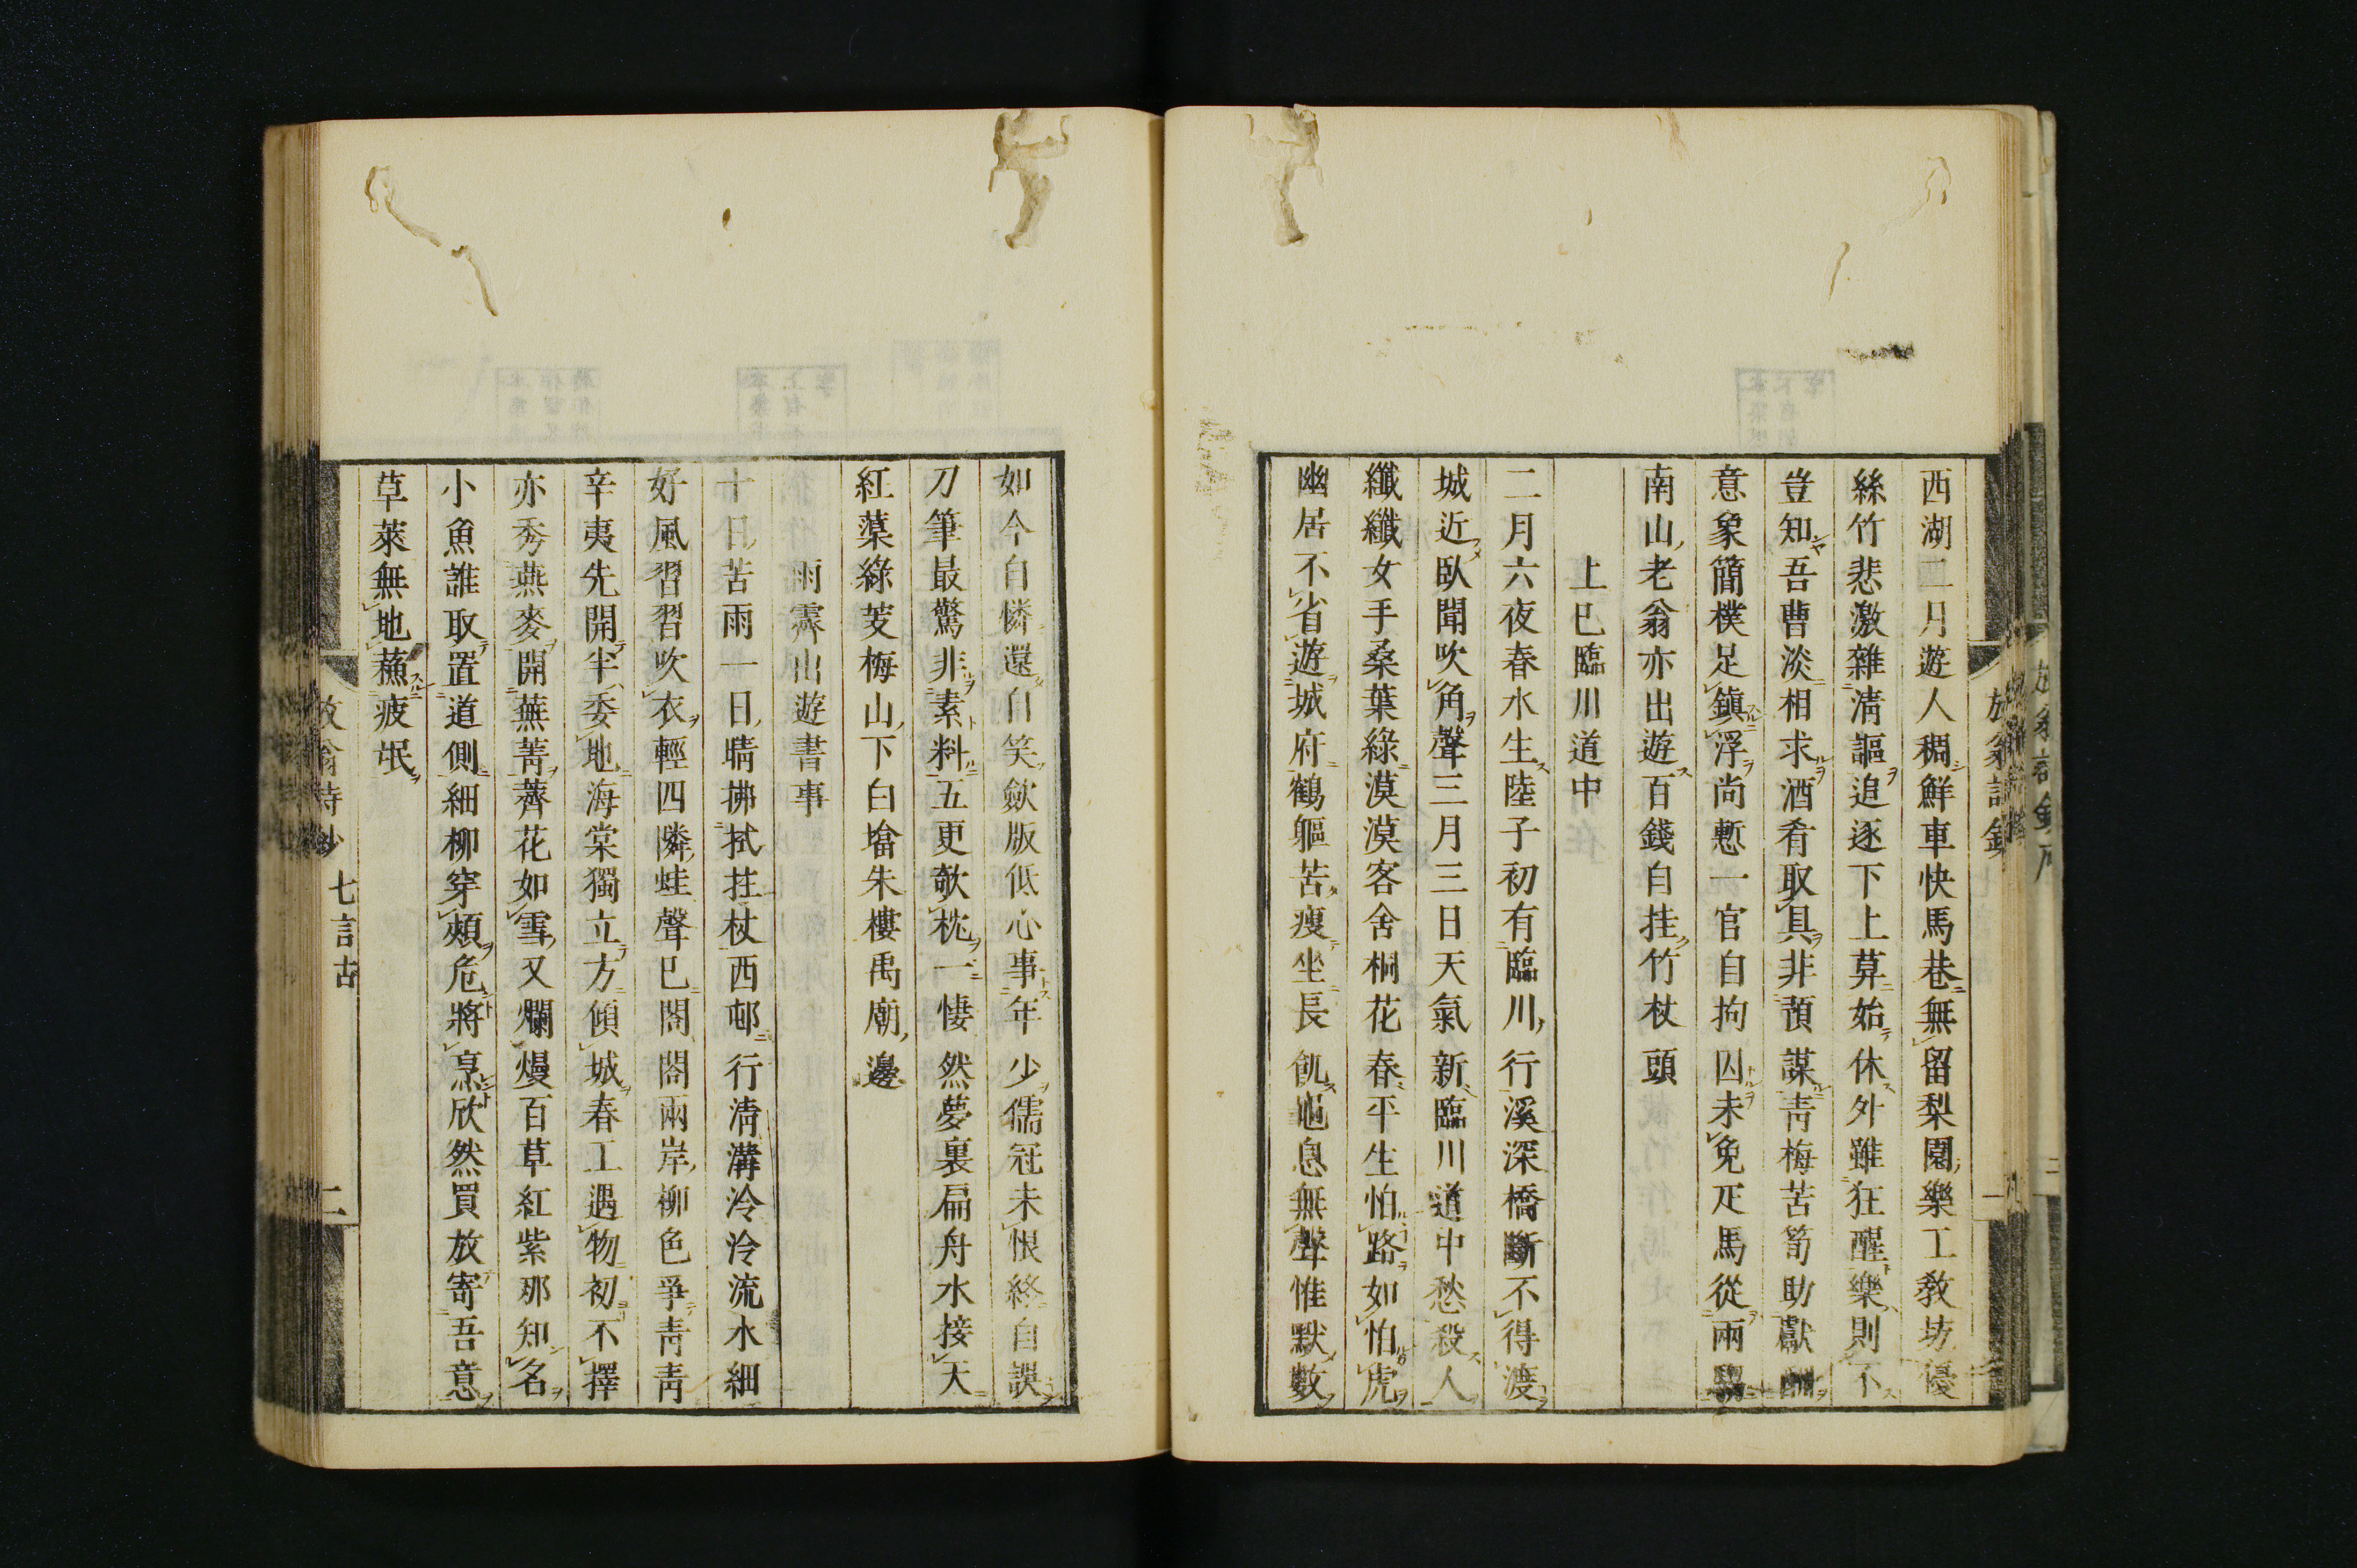 西湖二月遊人稠鮮車快馬巷無留梨園樂工教坊優
絲竹悲激雜淸謳追逐下上萛始休外雖狂醒樂則不
豈知吾曹淡相求酒肴取具非預謀靑梅苦筍助獻酬
意象簡樸足鎭浮尚慙一官自拘囚未免疋馬從兩
南山老翁亦出遊百錢自挂竹杖頭
上巳臨川道中
二月六夜春水生陸子初有臨川行溪深橋斷不得渡
城近臥聞吹角聲三月三日天氣新臨川道中愁殺人
纖纖女手桑葉綠漠漠客舍桐花春平生怕路如怕虎
幽居不省遊城府鶴軀苦瘦坐長飢龜息無聲惟默數
如今自憐還自笑歛版低心事年少儒冠未恨終自誤
刀筆最驚非素料五更欹枕一悽然夢裏扁舟水接天
紅蕖綠芰梅山下白墖朱樓禹廟邊
雨霽出遊書事
十日苦雨一日晴拂拭拄杖西邨行淸溝泠泠流水細
好風習習吹衣輕四隣蛙聲已閤閤兩岸柳色爭靑靑
辛夷先開半委地海棠獨立方傾城春工遇物初不擇
亦秀燕麥開蕪菁薺花如雪又爛熳百草紅紫那知名
小魚誰取置道側細柳穿頰危將烹欣然買放寄吾意
草萊無地蘓疲氓
放翁詩鈔 七言古 二